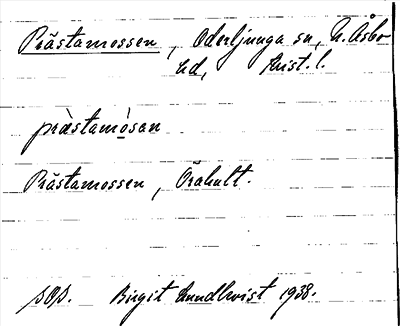 Prästamossen, Oderljunga sn, N. Åsbo
hd, Krist. l.
præ̀stamósan
Prästamossen, Örahult.
sOs. Birgit Lundkvist 1938.